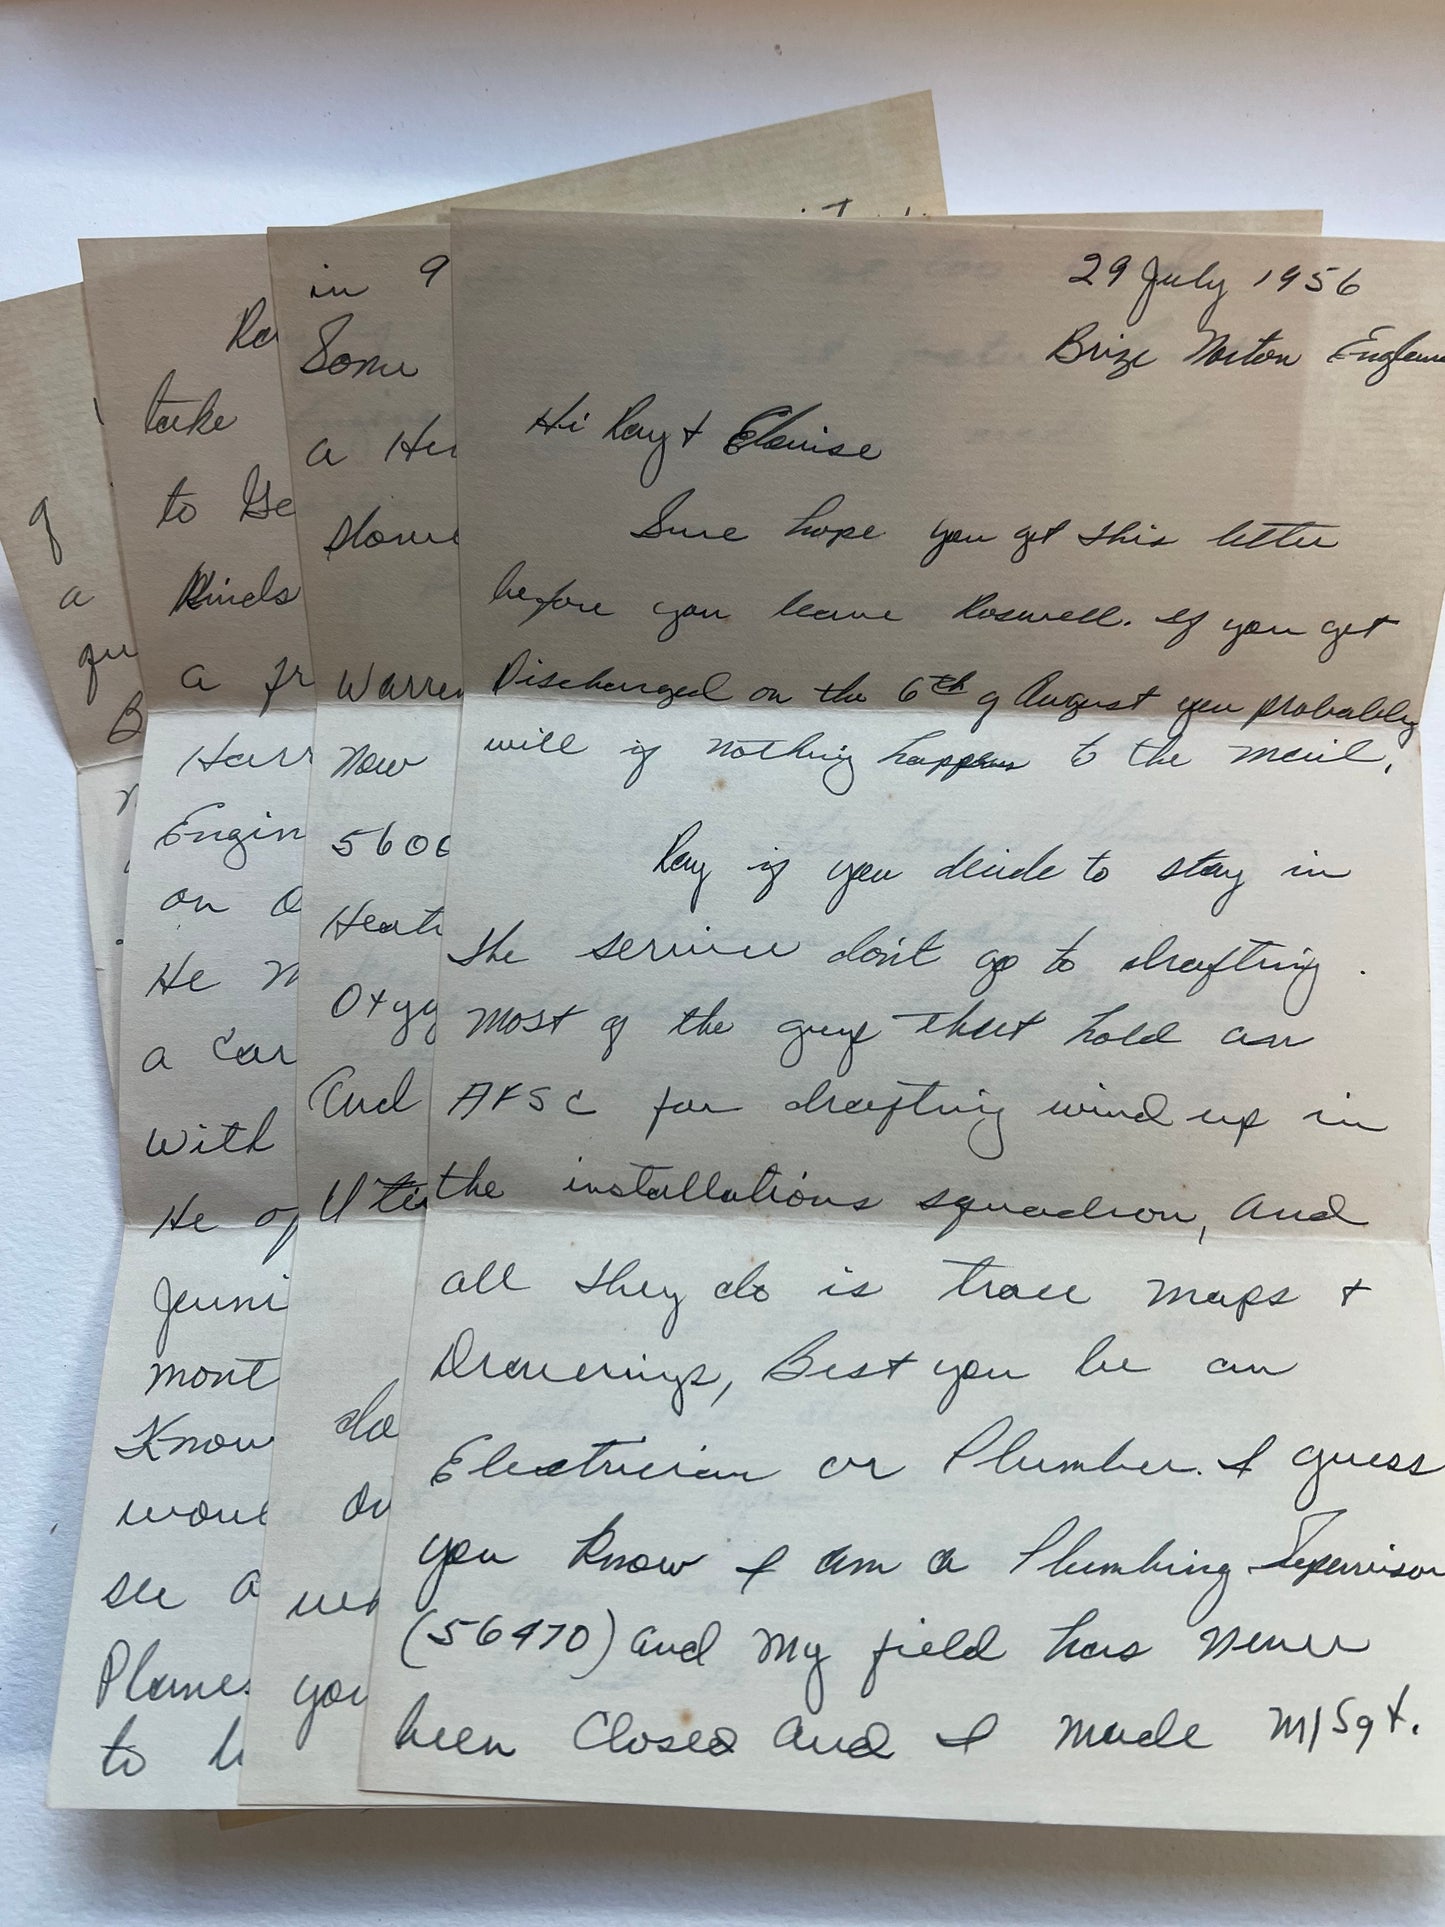 29 July 1956
Brize Norton Englan
Hi Ray + Elouise
Sure hope you get this letter
before you leave Roswell. If you get
Discharged on the 6th of August you probably
will if nothing happens to the mail.
Ray if you decide to stay in
the service don't go to drafting.
most of the guys that hold an
AFSC for drafting wind up in
the installations squadron, and
all they do is trace maps +
Drawerings, Best you be an
Electrician or Plumber. I guess
you know I am a Plumbing Supervisor
(56470) and my field has never
been Closed and I made M/Sgt.
in 9
Some
a Her
down
Warren
Now
560
Heat
Oxyg
And
Uti
do
on
you
Ra
take
to Ge
Kinds
a fr
Harr
Engin
on O
He m
a Car
With
He of
Jeuni
mont
Know
woul
see a
Planes
to b
of
a
qu
B